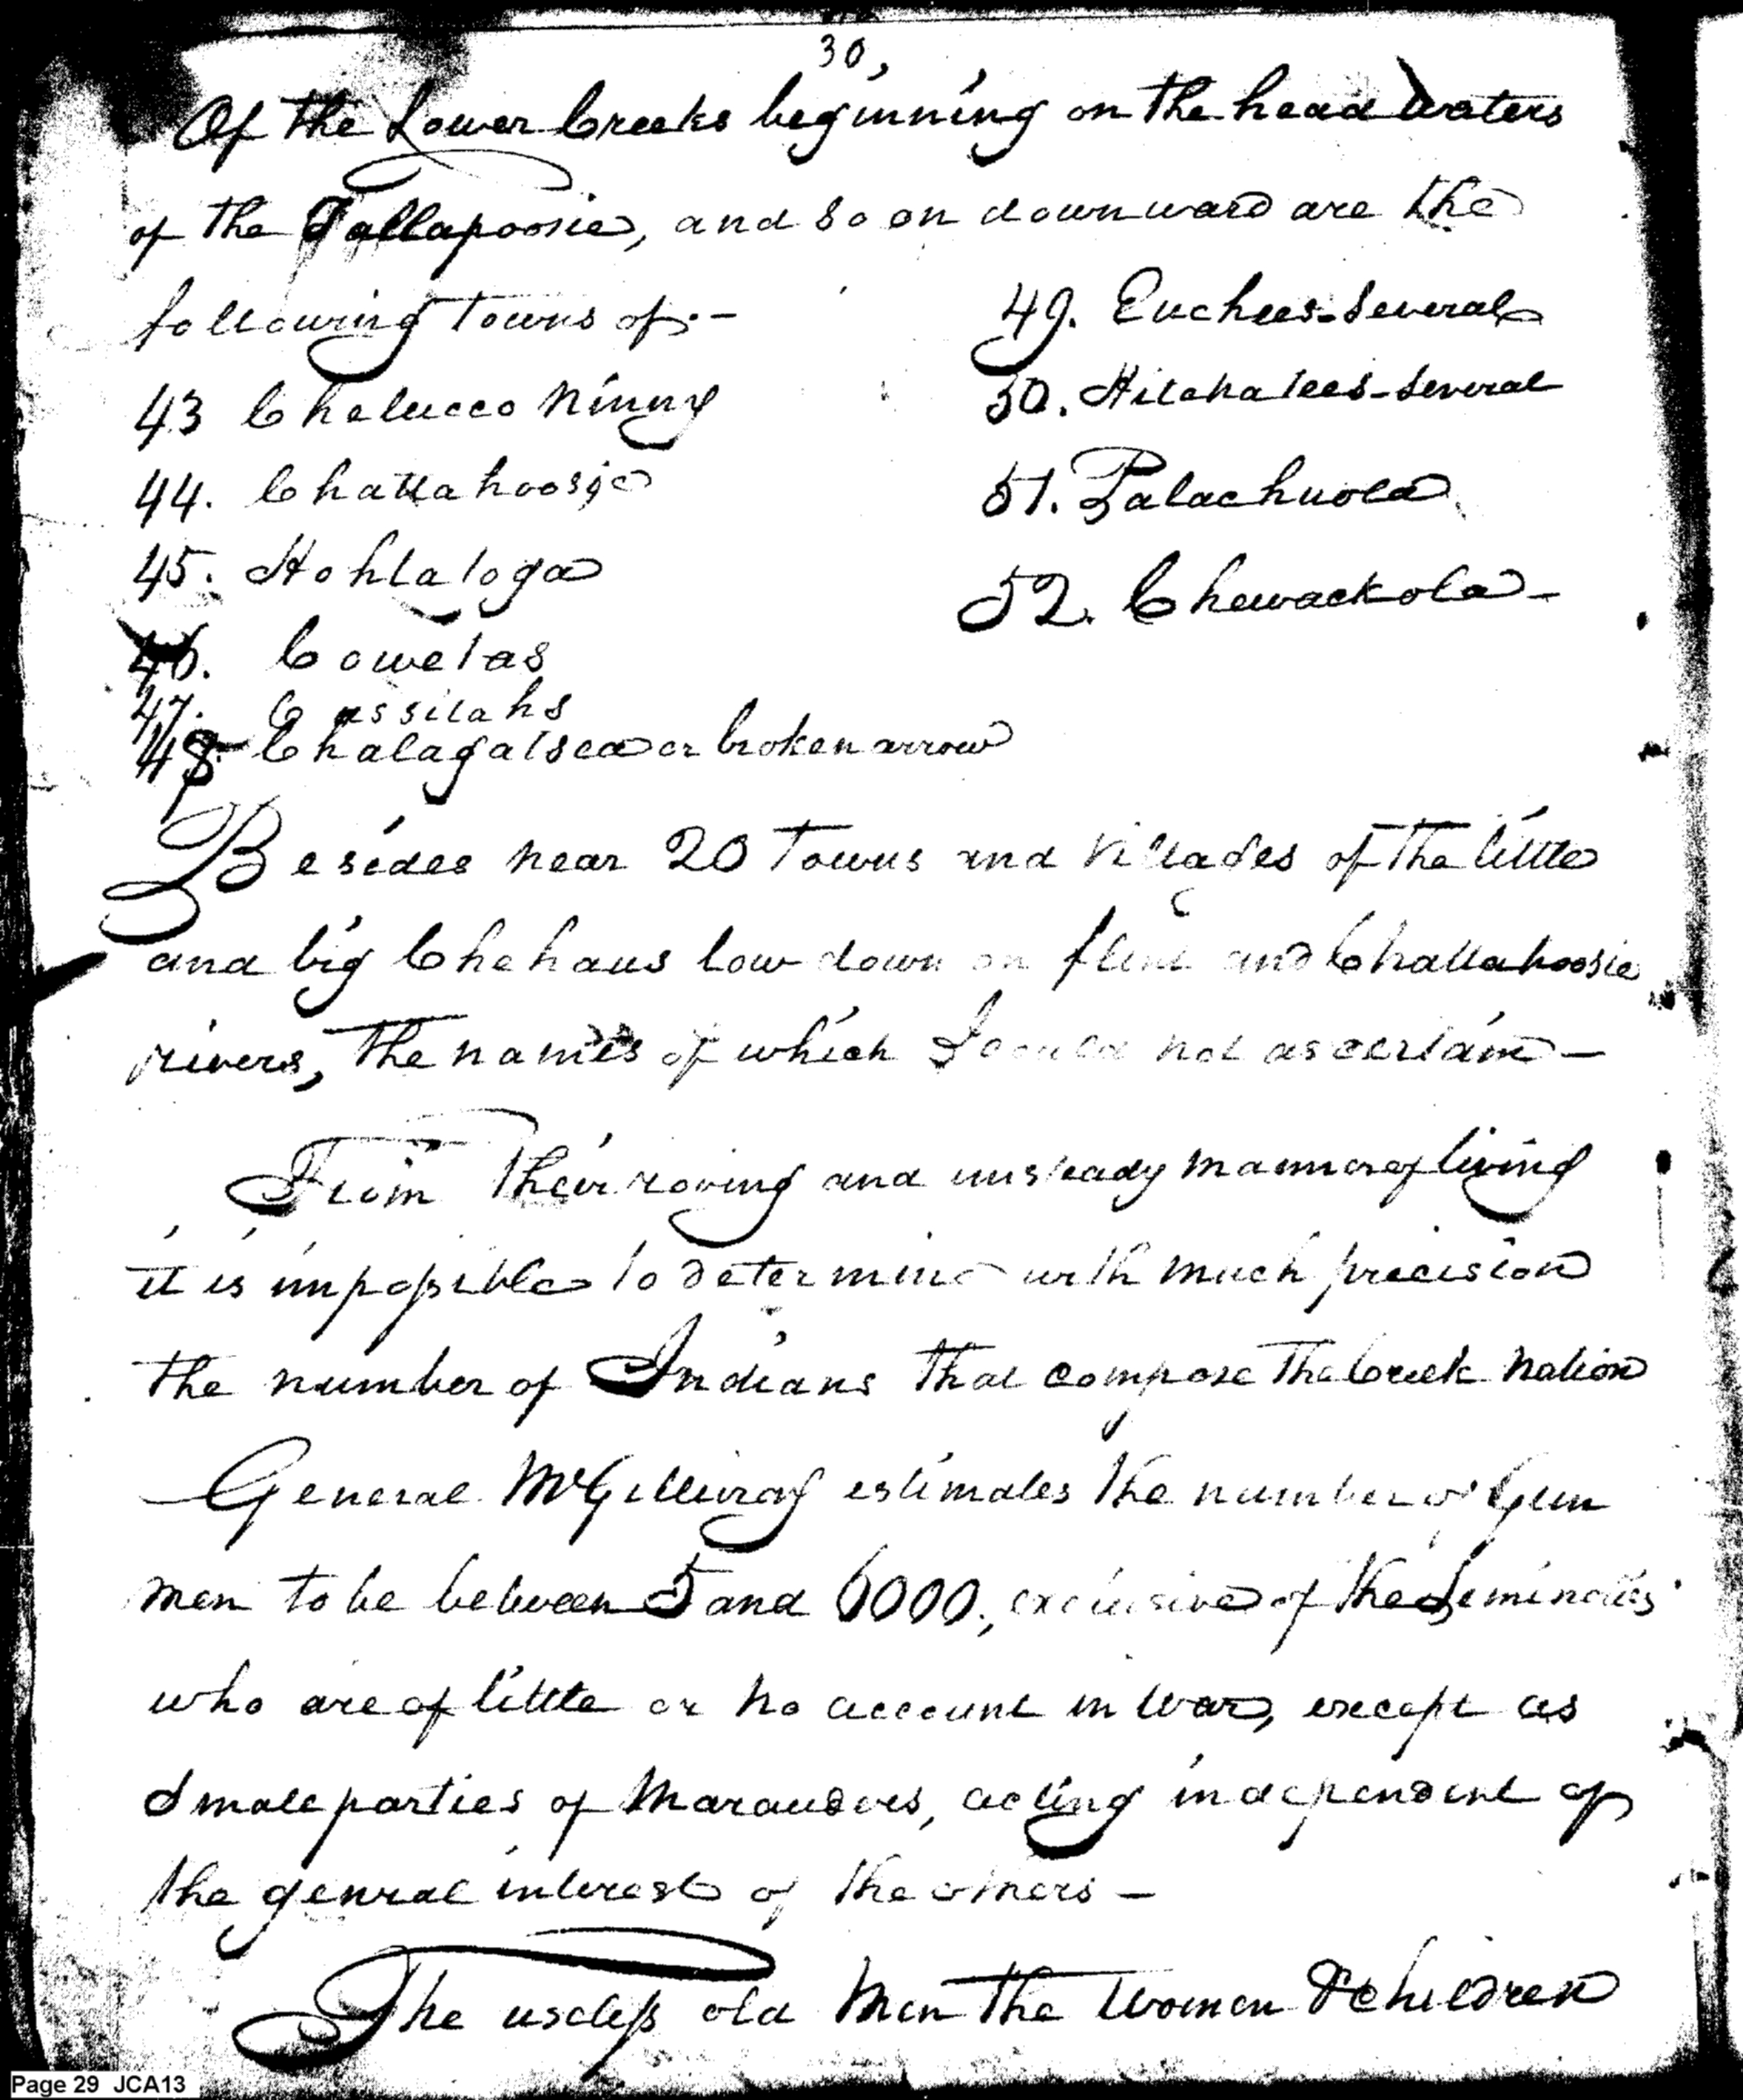 30,
Of the Lower Creeks beginning on the head Waters
of the Tallapoosie, and so on downward are the
following Towns of:-
43 Chelucco Ninny
44. Chattahoosie
45. Hohtatoga
46. Cowetas
47. Cussitahs
48. Chalagatsca or broken arrow
49. Euchees-Several
50. Hitchatees-Several
51. Palachuola
52. Chewackola-
Besides near 20 Towns and Villages of the little
and big Chehaus low down on flint and Chattahoosie
rivers, the names of which I could not ascertain-
From Their roving and unsteady manner of living
it is impossible to determine with much precision
the number of Indians that compose The Creek Nation
General McGillivray estimates the number of Gun
men to be between 5 and 6000, exclusive of the Seminolies
who are of little or no account in War, except as
Small parties of Marauders, acting independent of
the genral interest of the others-
The useless old Men The Women & Children
Page 29 JCA13